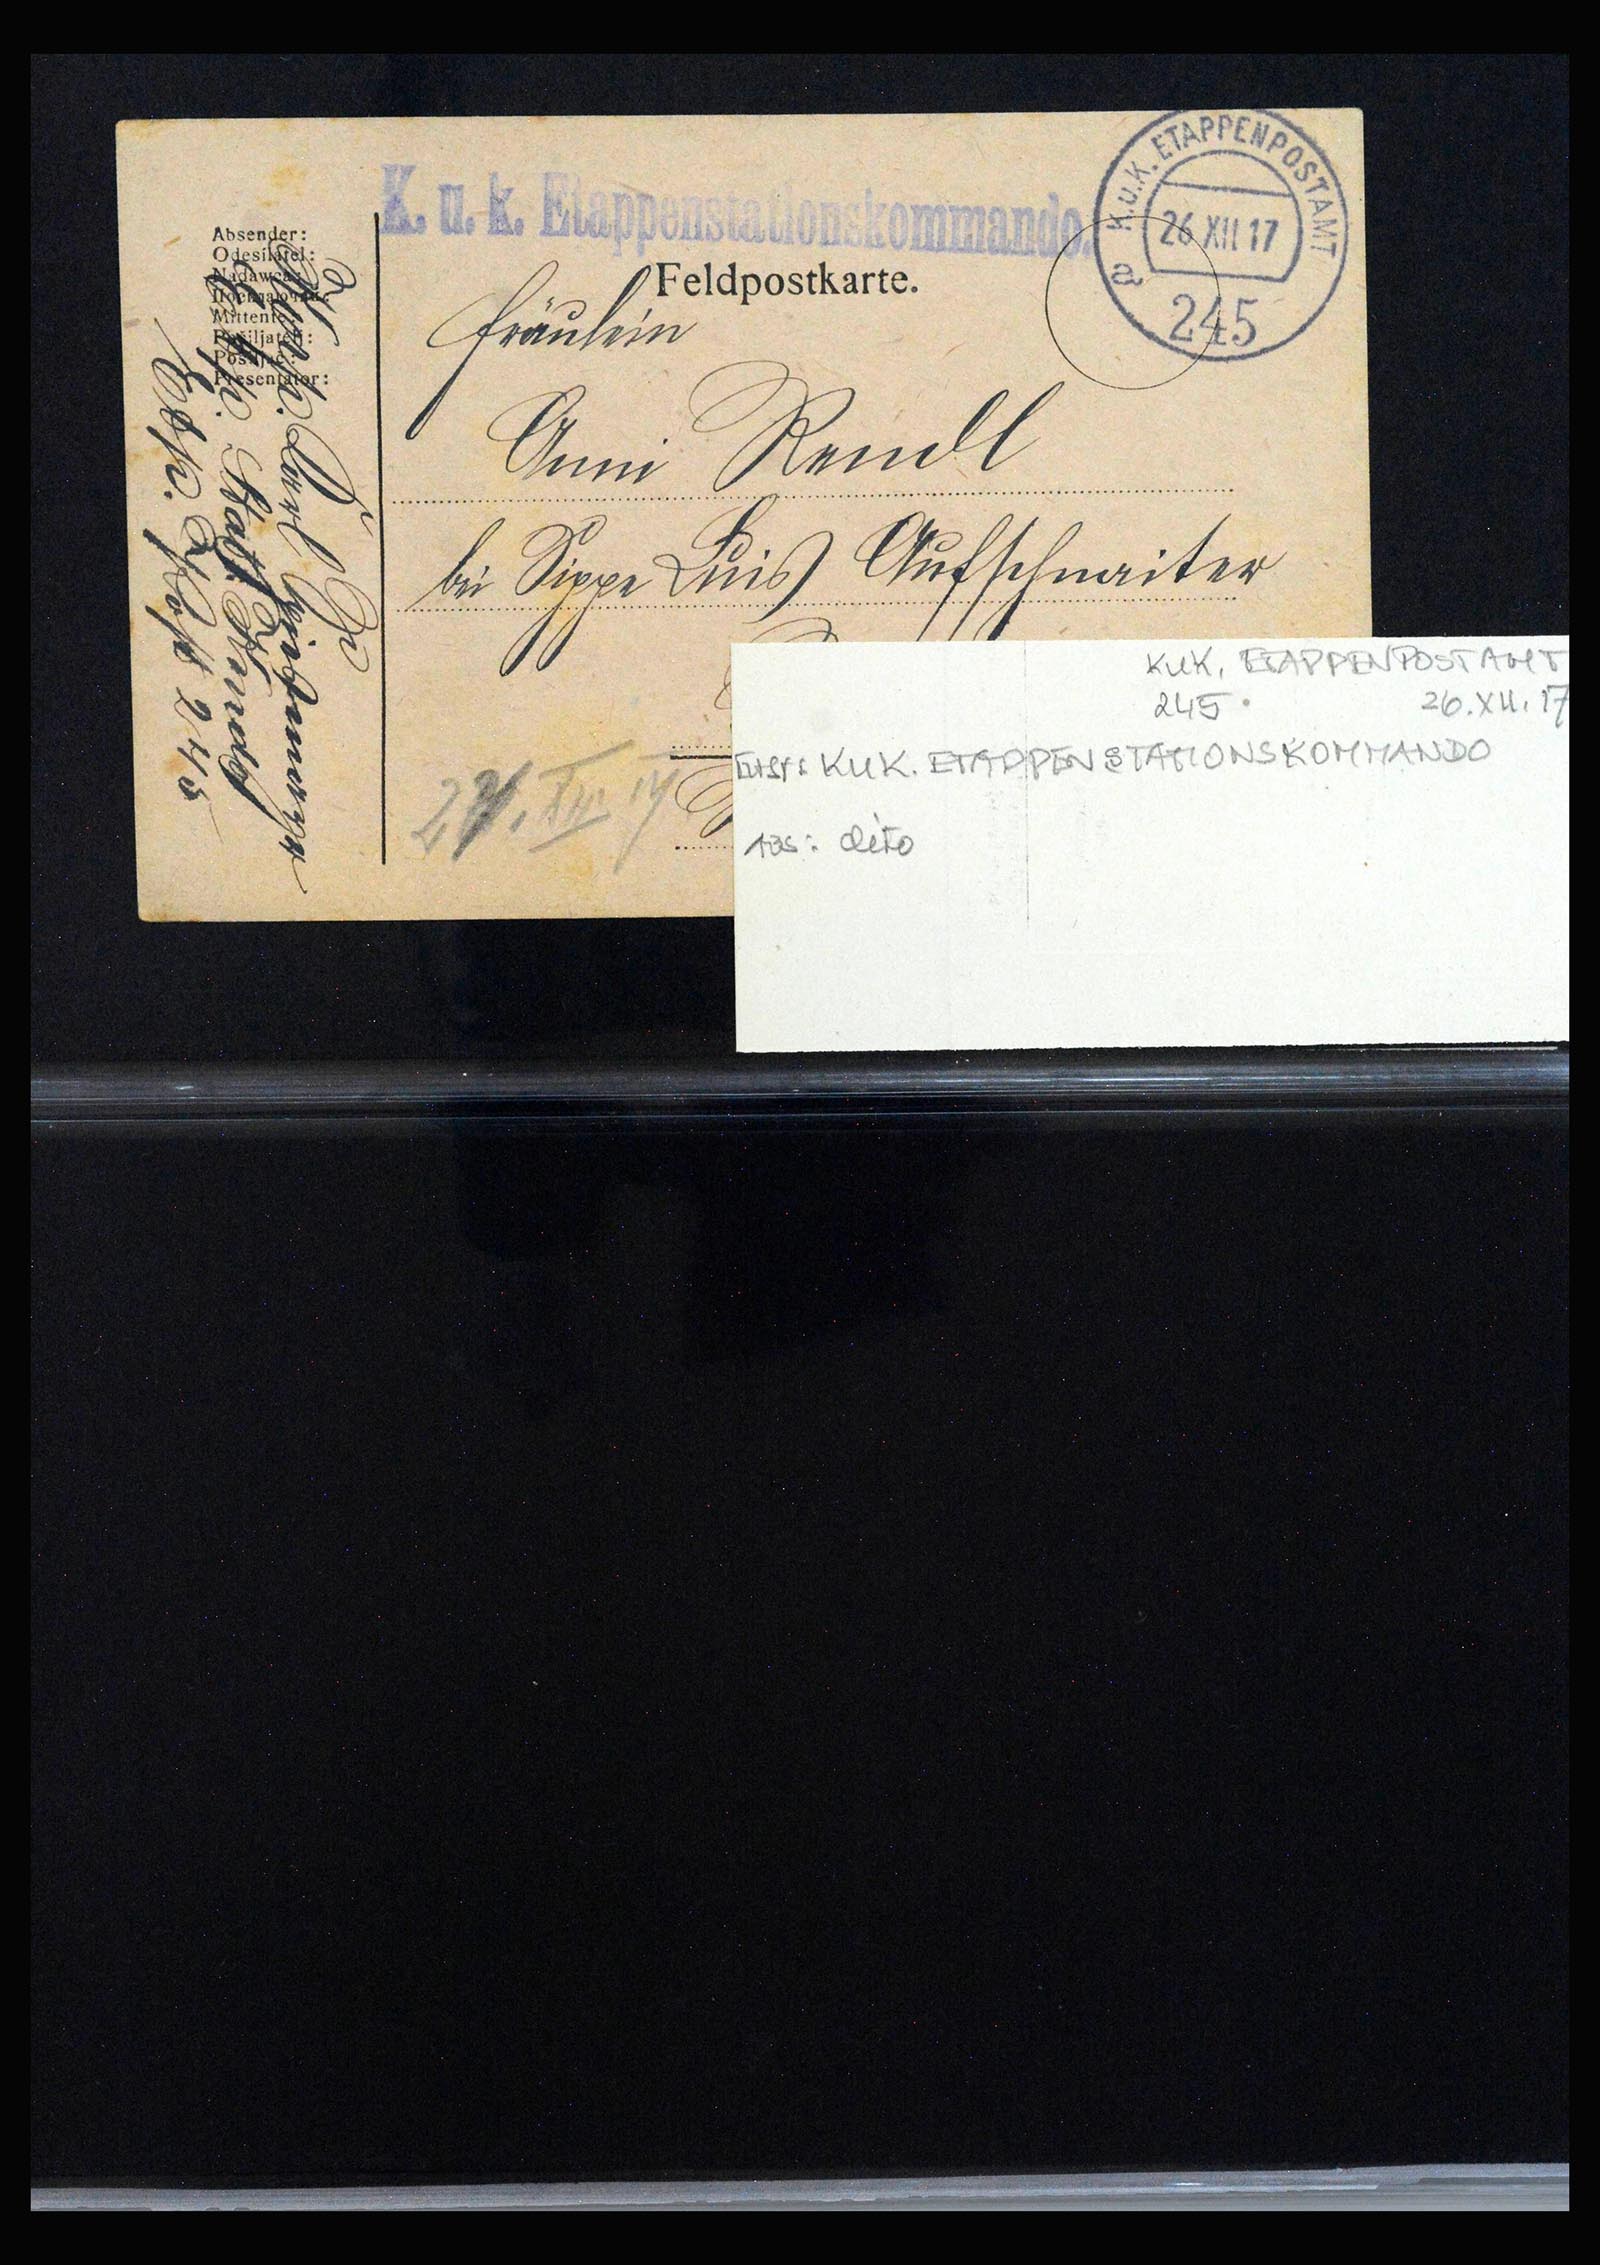 K. u. k. Etappenstationskommando.
K.u.K. ETAPPENPOSTAMT
26 XII 17
a
245
Feldpostkarte.
Absender:
Odesílatel:
Nadawca:
Mittente:
Pošiljatelj:
Posiljač:
Presentator:
Fräulein
Anni Rendl
bei Sippe Luis Aufschnaiter
Post 245
XII 17
KUK. ETAPPENPOSTAMT
245 26.XII.17
KUK. ETAPPENSTATIONSKOMMANDO
ABS: dito